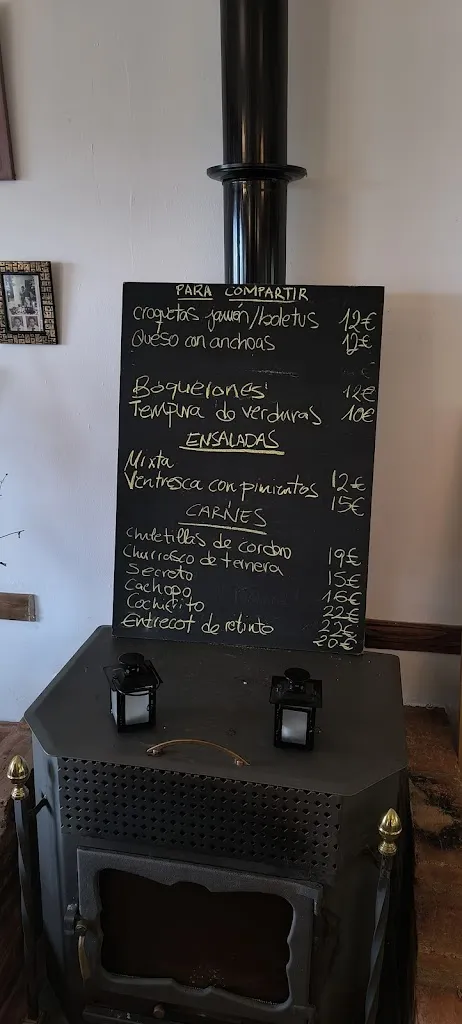 PARA COMPARTIR
croquetas jamón/boletus 12€
Queso con anchoas 12€
Boquerones 12€
Tempura de verduras 10€
ENSALADAS
Mixta 12€
Ventresca con pimientos 15€
CARNES
Chuletillas de cordero 19€
Churrasco de ternera 15€
Secreto 16€
Cachopo 22€
Cochinito 22€
Entrecot de retinto 20€